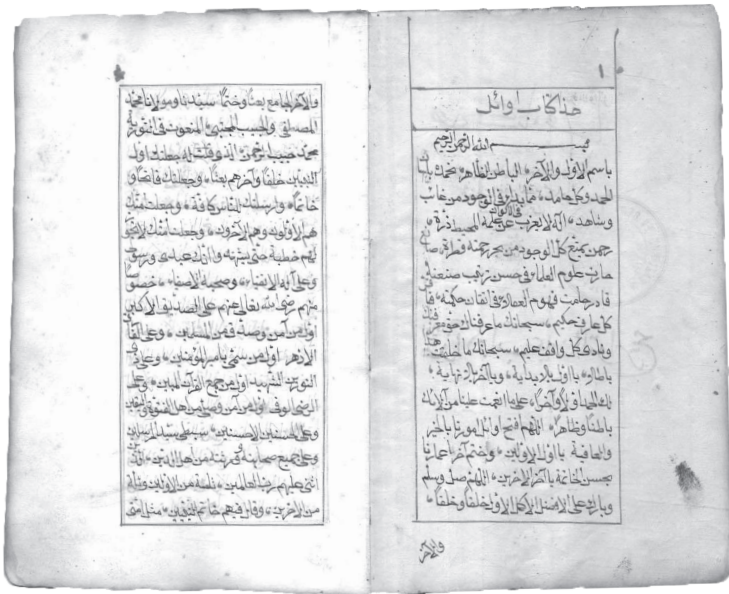 ١
هذا كتاب اوائل
بسم الله الرحمن الرحيم
باسم الاول والآخر الباطن الظاهر نحمدك بلسان
الحمد وكل حامد فما يدار في الوجود من غائب
وشاهد اله لا يعزب عن علمه المحيط ذرة
رحمن يمنح كل الوجود من بحر رحمته قطرة صانع
حارت علوم العلماء في حسن ترتيب صنعته
قادر حامت فهوم العقلاء في اتقان حكمته
كل عارف حكيم سبحانك ما عرفناك حق معرفتك
ونادى كل واقف عليم سبحانك ما خلقت هذا
باطلا يا اول بلا بداية ويا آخر بلا نهاية
لك الحمد اولا وآخرا على ما انعمت علينا من آلائك
باطنا وظاهرا اللهم افتح اوائل امورنا بالخير
والعافية يا اول الاولين واختم آخر اعمالنا
بحسن الخاتمة يا آخر الآخرين اللهم صل وسلم
وبارك على الافضل الاكمل الاول خلقا وخلقا
والآخر
والآخر الجامع بعثا وختما سيدنا ومولانا محمد
المصطفى والحبيب المجتبى المنعوت في التوراة
محمد حبيب الرحمن الذي قلت له جعلتك اول
النبيين خلقا وآخرهم بعثا وجعلتك فاتحا و
خاتما وارسلتك للناس كافة وجعلت امتك
هم الاولون وهم الآخرون وجعلت امتك لا تجوز
لهم خطبة حتى يشهدوا انك عبدي ورسولي
وعلى آله الاتقياء وصحبه الاصفياء خصوصا
منهم رضي الله تعالى عنهم على الصديق الاكبر
اول من آمن وصدق من المسلمين وعلى الفاروق
الازهر اول من سمي بامير المؤمنين وعلى ذي
النورين الشهيد اول من جمع القرآن المبين وعلى
المرتضى الوفي اول من آمن وصلى من اهل الفتوة واليقين
وعلى الحسنين الاحسنين سبطي سيد المرسلين
وعلى جميع صحابته وقرابته من اهل الدين الذين
اثنى عليهم رب العالمين ثلة من الاولين وثلة
من الآخرين وقال فيهم خاتم النبيين مثل امتي